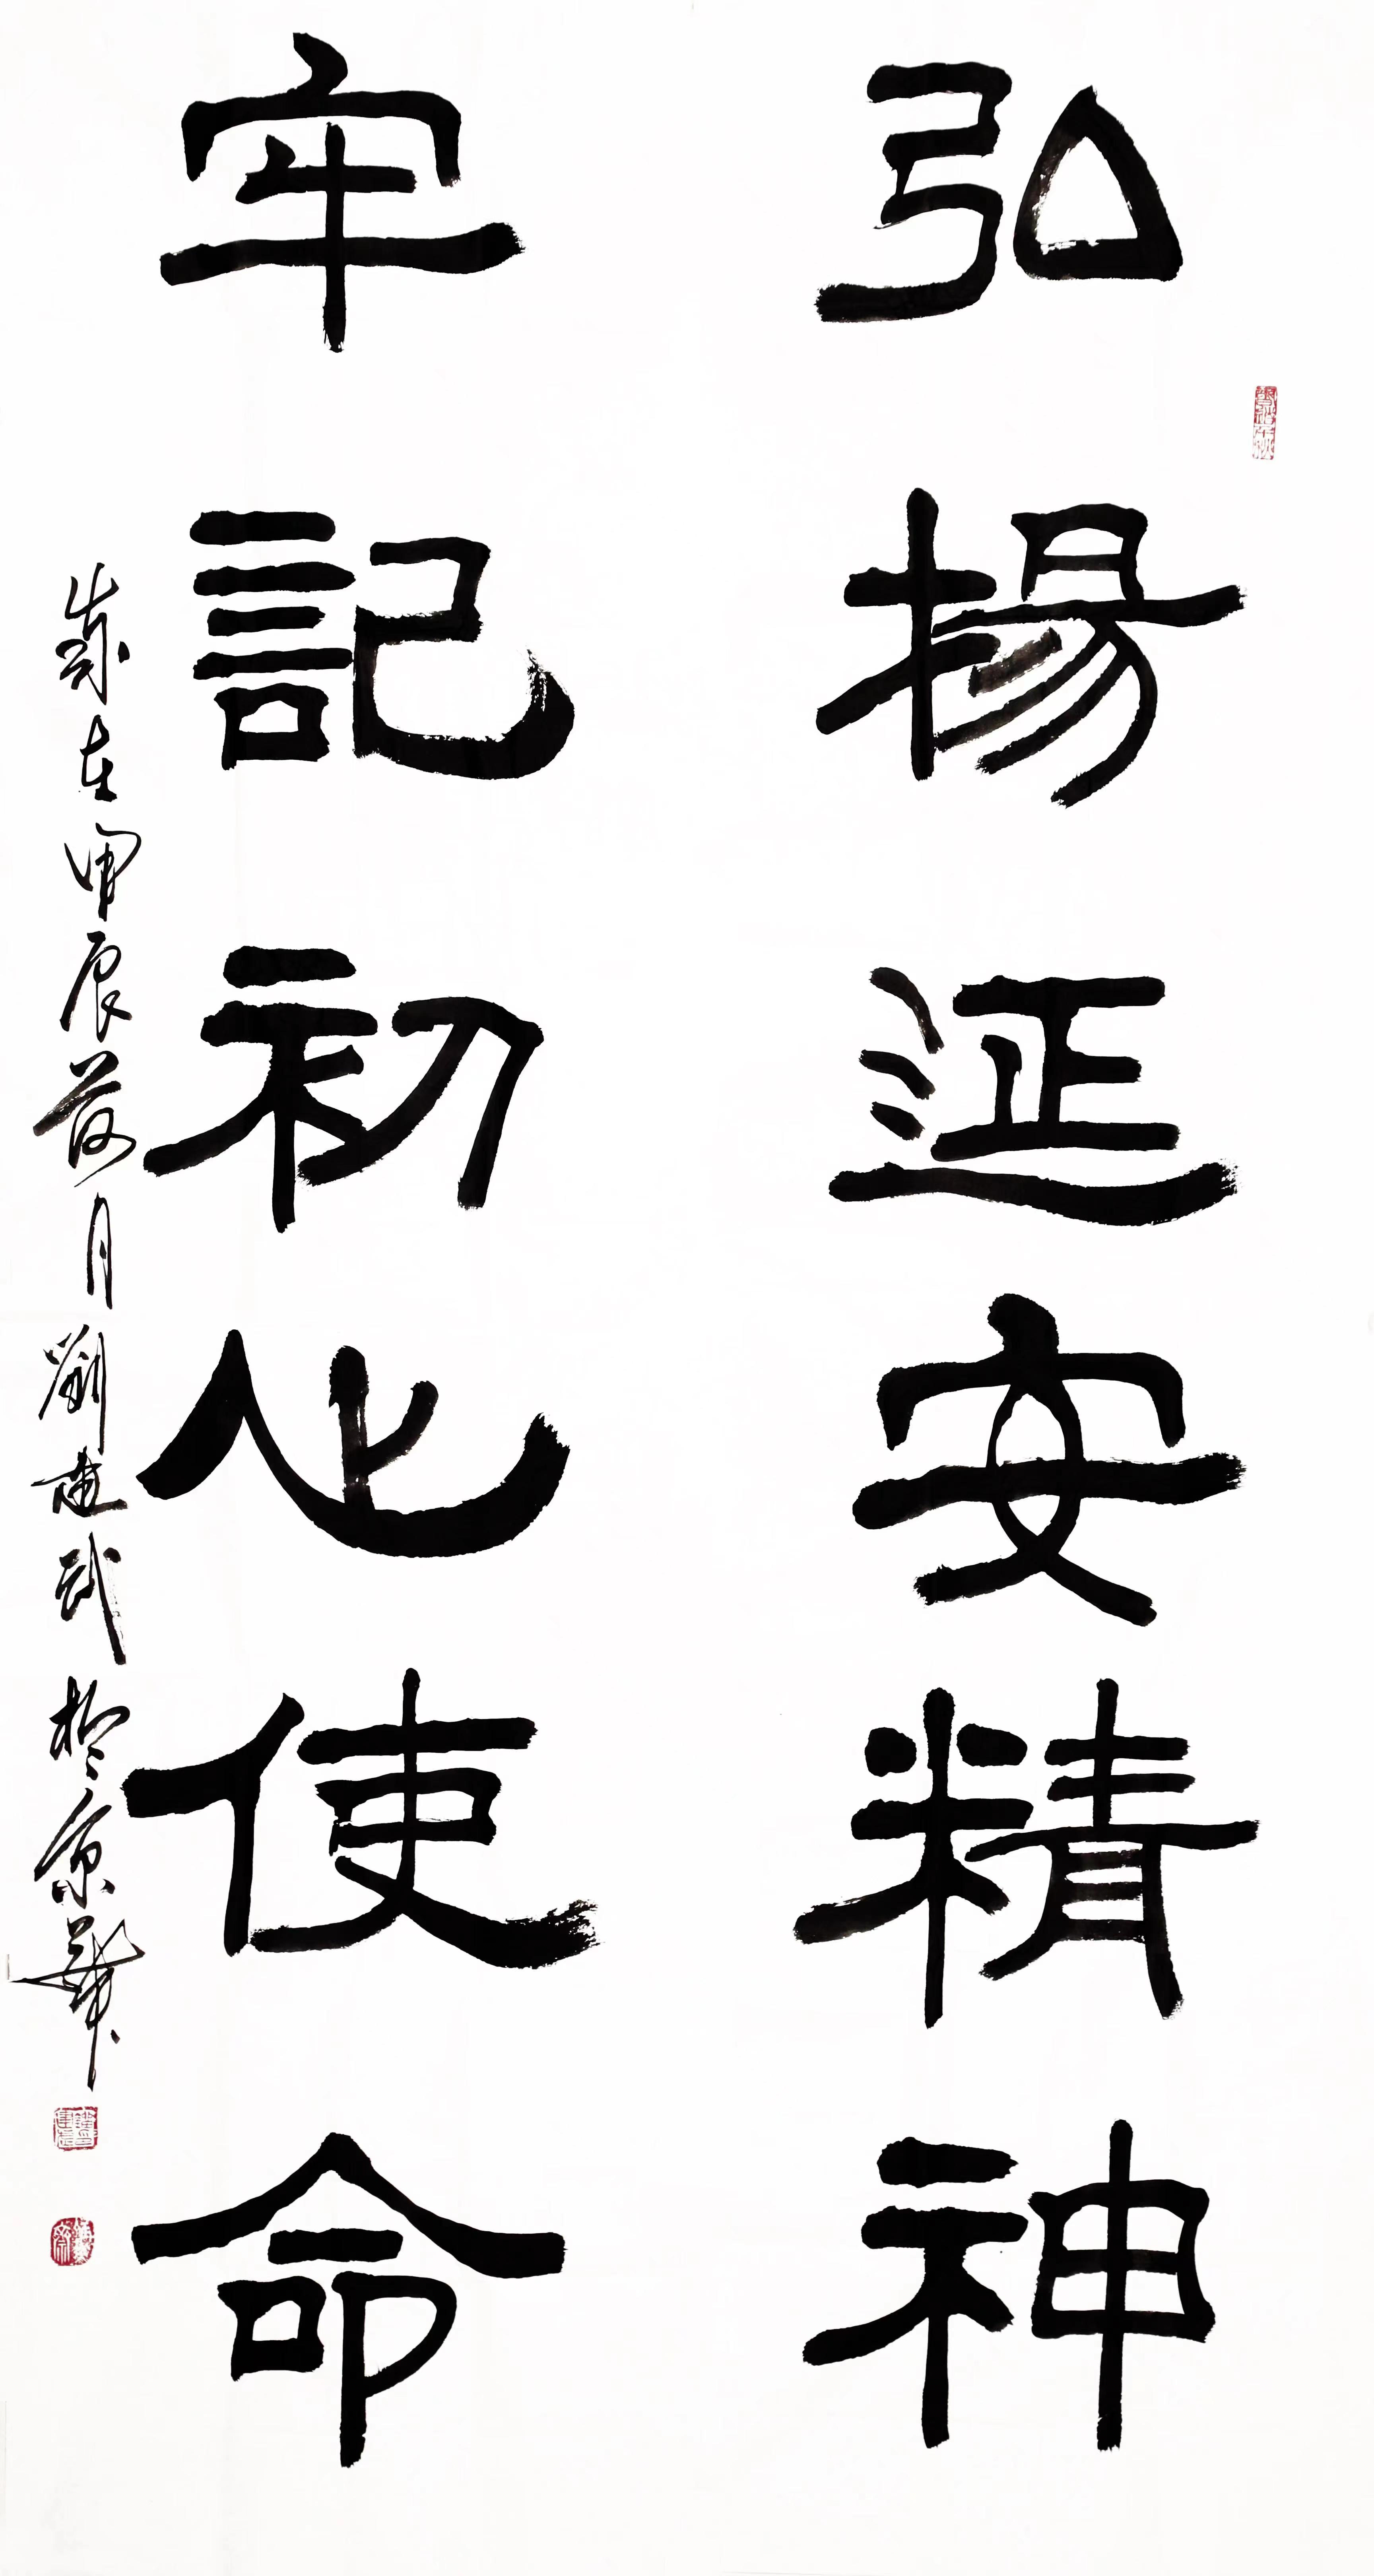 弘揚延安精神
牢記初心使命
歲在甲辰荷月劉建武於京華